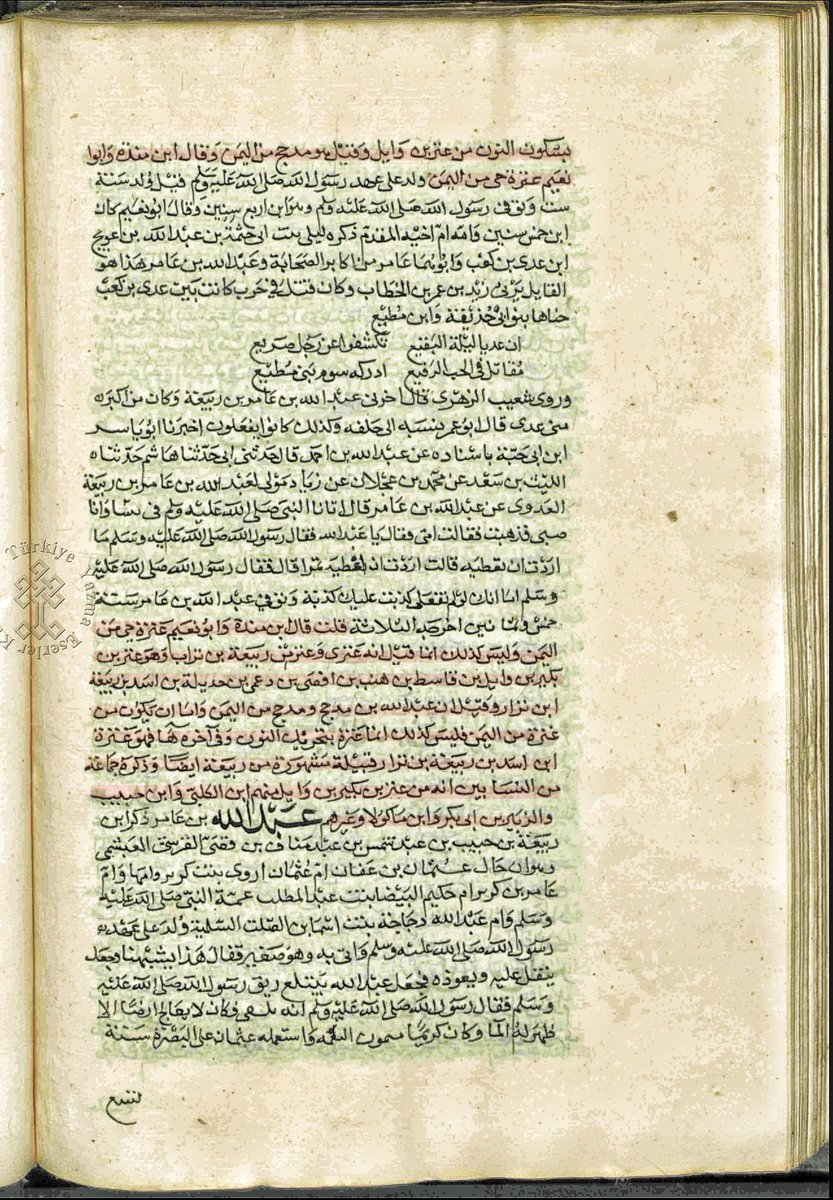 بسكون النون من عنز بن وايل وقيل هو مدحج من اليمن وقال ابن مندة وابوا
نعيم عنزة حى من اليمن ولد على عهد رسول الله صلى الله عليه وسلم قيل ولد سنة
ست وتوفى رسول الله صلى الله عليه وسلم وهو ابن اربع سنين وقال ابو نعيم كان
ابن خمس سنين وامه ام اخيه المقدم ذكره ليلى بنت ابى حثمة بن عبد الله بن عويج
ابن عدى بن كعب وابوهما عامر من اكابر الصحابة وعبد الله بن عامر هذا هو
القايل يرثى زيد بن عمر بن الخطاب وكان قتل فى حرب كانت بين عدى بن كعب
جناها بنو ابى حذيفة وابن مطيع
ان عديا ليلة البقيع تكشفوا عن رجل صريع
مقاتل فى الحسب الرفيع ادركه شوم بنى مطيع
وروى شعيب الزهرى قال اخبرنى عبد الله بن عامر بن ربيعة وكان من اكبر
بنى عدى قال ابو عمر ينسبه الى حلفه وكذلك كانوا يفعلون اخبرنا ابو ياسر
ابن ابى حبة باسناده عن عبد الله بن احمد قال حدثنى ابى حدثنا هاشم حدثنا
الليث بن سعد عن محمد بن عجلان عن زياد مولى لعبد الله بن عامر بن ربيعة
العدوى عن عبد الله بن عامر قال اتانا النبى صلى الله عليه وسلم فى بيتنا وانا
صبى فذهبت فقالت امى فقال يا عبد الله فقال رسول الله صلى الله عليه وسلم ما
اردت ان تعطيه قالت اردت ان اعطيه تمرا قال فقال رسول الله صلى الله عليه
وسلم اما انك لو لم تفعلى كذبت عليك كذبة وتوفى عبد الله بن عامر سنة
خمس وثمانين اخرجه الثلاثة قلت قال ابن مندة وابو نعيم عنزة حى من
اليمن وليس كذلك انما قيل انه عنزى وعنز من ربيعة بن نزار وهو عنز بن
بكير بن وايل بن قاسط بن هنب بن افصى بن دعمى بن جديلة بن اسد بن ربيعة
ابن نزار وقيل ان عبد الله بن مدحج ومدحج من اليمن واما ان يكون من
عنزة من اليمن فليس كذلك انما عنزة بتحريك النون وفى آخره ها فهو عنزة
ابن اسد بن ربيعة بن نزار قبيلة مشهورة من ربيعة ايضا وذكره جماعة
من النسابين انه من عنز بن بكير بن وايل منهم ابن الكلبى وابن حبيب
والزبير بن ابى بكر وابن ماكولا وغيرهم عبد الله بن عامر ذكر ابن
ربيعة بن حبيب بن عبد شمس بن عبد مناف بن قصى القرشى العبشمى
خال عثمان بن عفان ام عثمان اروى بنت كريز وامها وام
عامر بن كريز ام حكيم البيضا بنت عبد المطلب عمة النبى صلى الله عليه
وسلم وام عبد الله دجاجة بنت اسما بن الصلت السلمية ولد على عهد
رسول الله صلى الله عليه وسلم واتى به وهو صغير فقال هذا يشبهنا وجعل
يتفل عليه ويعوذه فجعل عبد الله يبتلع ريق رسول الله صلى الله عليه
وسلم فقال رسول الله صلى الله عليه وسلم انه فكان لا يعالج ارضا الا
ظهر له الما وكان كريما ميمون واستعمله عثمان على البصرة سنة
تسع
Türkiye Yazma Eserler